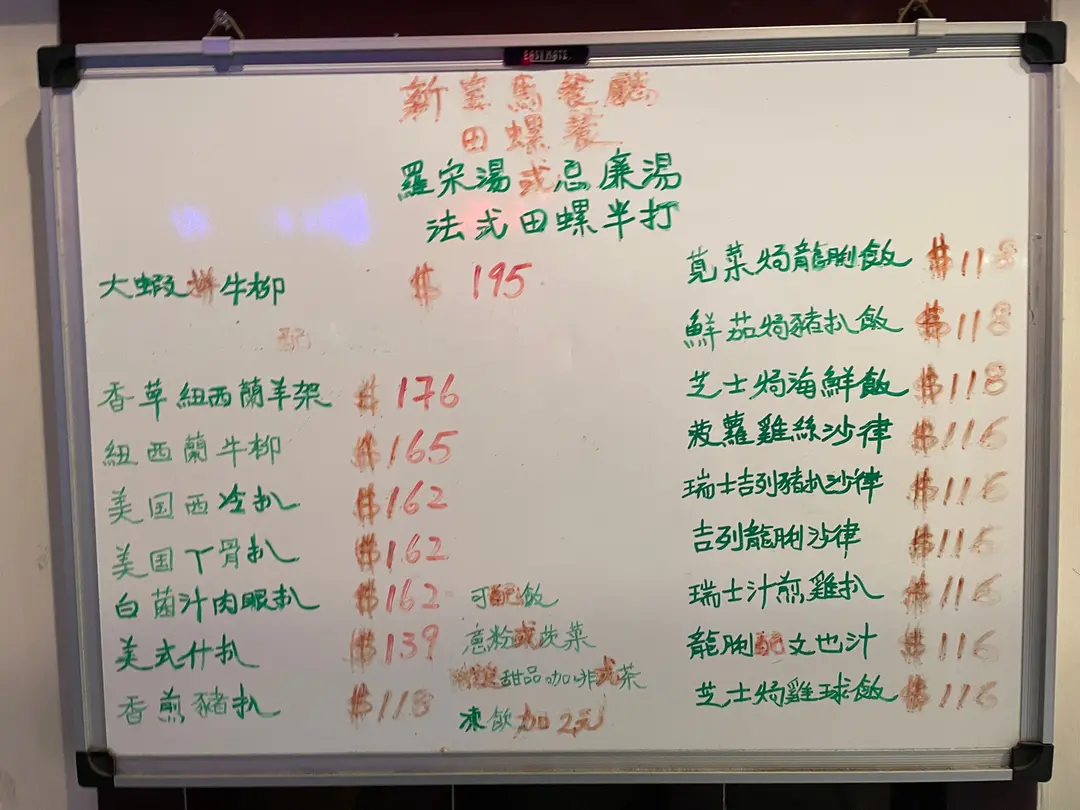 EASYMATE
新寶馬餐廳
田螺餐
羅宋湯或忌廉湯
法式田螺半打
大蝦拼牛柳 $195
配
香草紐西蘭羊架 $176
紐西蘭牛柳 $165
美国西冷扒 $162
美国丫骨扒 $162
白菌汁肉眼扒 $162
美式什扒 $139
香煎豬扒 $118
可配飯
意粉或茂菜
甜品咖啡或茶
凍飲加2元
莧菜焗龍脷飯 $118
鮮茄焗豬扒飯 $118
芝士焗海鮮飯 $118
菠蘿雞絲沙律 $116
瑞士吉列豬扒沙律 $116
吉列龍脷沙律 $116
瑞士汁煎雞扒 $116
龍脷配文也汁 $116
芝士焗雞球飯 $116